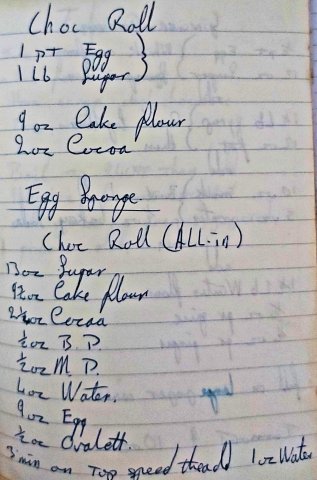 Choc Roll
1 PT Egg }
1 Lb Sugar }
9 oz Cake flour
2oz Cocoa
Egg Sponge
Choc Roll (ALL-in)
13oz Sugar
9½oz Cake flour
2½oz Cocoa
½oz B.P.
½oz M.P.
4oz Water.
9oz Egg
½oz Ovalett.
3 min on Top speed thadd 1oz Water